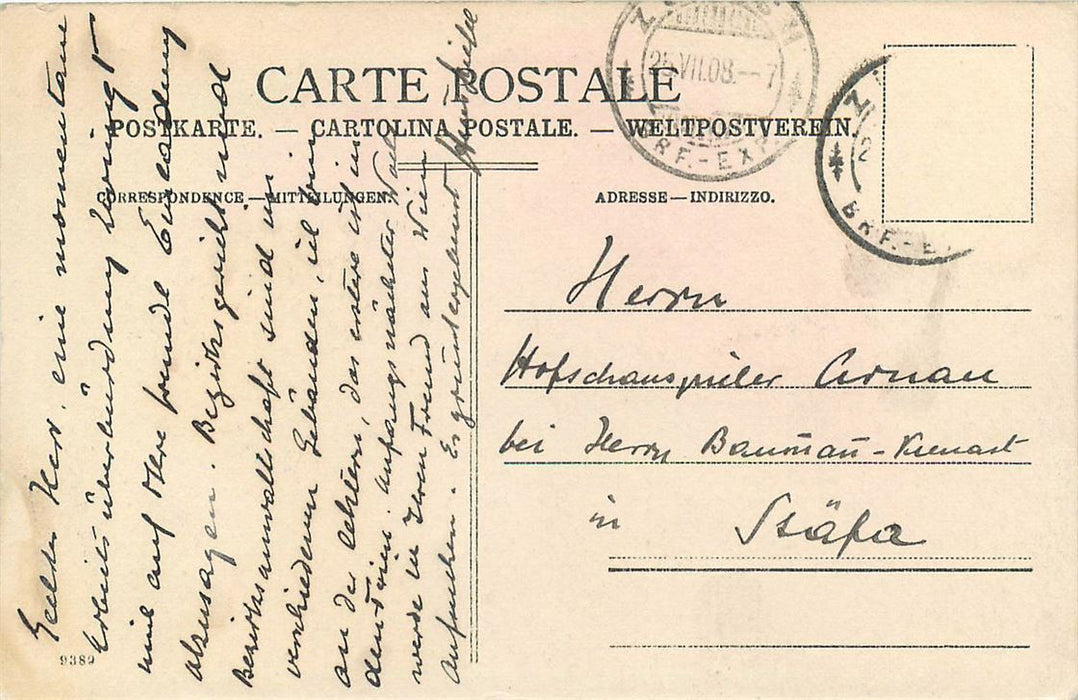 CARTE POSTALE
POSTKARTE. — CARTOLINA POSTALE. — WELTPOSTVEREIN.
CORRESPONDENCE — MITTEILUNGEN.
ADRESSE — INDIRIZZO.
25.VII.08. -- 7
BRF.-EXP.
BRF.-E
Herrn
Hofschauspieler Arnau
bei Herrn Baumañ-Kienast
in Stäfa
Geehr Herr, eine momentane
Arbeitsüberbürdung zwingt
mich auf Ihre Einladung
abzusagen. Bezirksgericht und
Bezirksanwaltschaft sind in
verschiedenen Gebäuden, ich bin
an der letztern, das erstere ist in
den Ferien. Anfangs nächster
werde in Ihren Freund aus Wien
aufsuchen. Es grüsst ergebenst
9389